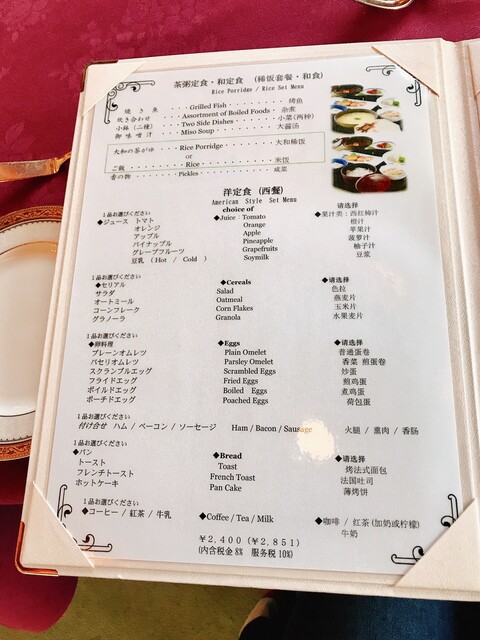 茶粥定食・和定食　(稀饭套餐・和食)
Rice Porridge / Rice Set Menu
焼 き 魚 ・・・・・ Grilled Fish ・・・・・・・・ 烤鱼
炊き合わせ ・・・ Assortment of Boiled Foods ・ 杂煮
小鉢 (二種) ・・・ Two Side Dishes ・・・・・・ 小菜 (两种)
御 味 噌 汁 ・・・ Miso Soup ・・・・・・・・・ 大酱汤
大和の茶がゆ ・・ Rice Porridge ・・・・・・・ 大和稀饭
or
ご飯 ・・・・・・ Rice ・・・・・・・・・・ 米饭
香の物 ・・・・・ Pickles ・・・・・・・・・ 咸菜
洋定食 (西餐)
American Style Set Menu
1品お選びください choice of 请选择
◆ジュース トマト ◆Juice : Tomato ◆果汁类 : 西红柿汁
オレンジ Orange 橙汁
アップル Apple 苹果汁
パイナップル Pineapple 菠萝汁
グレープフルーツ Grapefruits 柚子汁
豆乳 ( Hot / Cold ) Soymilk 豆浆
1品お選びください
◆セリアル ◆Cereals ◆请选择
サラダ Salad 色拉
オートミール Oatmeal 燕麦片
コーンフレーク Corn Flakes 玉米片
グラノーラ Granola 水果麦片
1品お選びください
◆卵料理 ◆Eggs ◆请选择
プレーンオムレツ Plain Omelet 普通蛋卷
パセリオムレツ Parsley Omelet 香菜 煎蛋卷
スクランブルエッグ Scrambled Eggs 炒蛋
フライドエッグ Fried Eggs 煎鸡蛋
ボイルドエッグ Boiled Eggs 煮鸡蛋
ポーチドエッグ Poached Eggs 荷包蛋
1品お選びください
付け合せ ハム / ベーコン / ソーセージ Ham / Bacon / Sausage 火腿 / 熏肉 / 香肠
1品お選びください
◆パン ◆Bread ◆请选择
トースト Toast 烤法式面包
フレンチトースト French Toast 法国吐司
ホットケーキ Pan Cake 薄烤饼
1品お選びください
◆コーヒー / 紅茶 / 牛乳 ◆Coffee / Tea / Milk ◆咖啡 / 红茶 (加奶或柠檬)
牛奶
￥2,400 (￥2,851)
(内含税金 8%　服务税 10%)